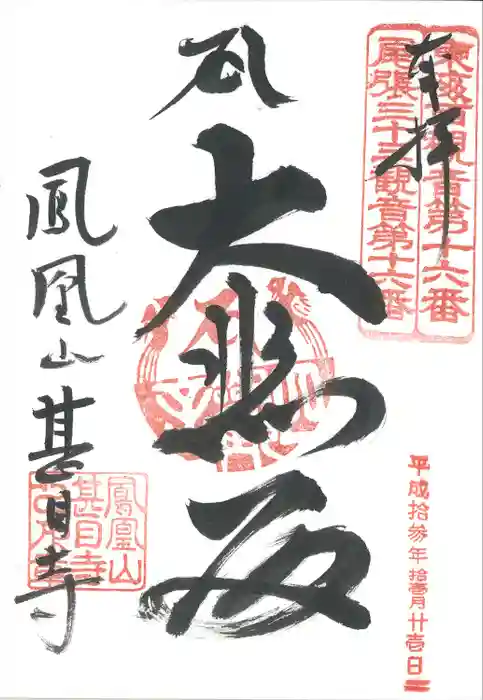 東海百観音第十六番
尾張三十三観音第十六番
奉拝
大悲殿
鳳凰山甚目寺
鳳凰山
甚目寺
平成拾参年拾壹月廿壱日